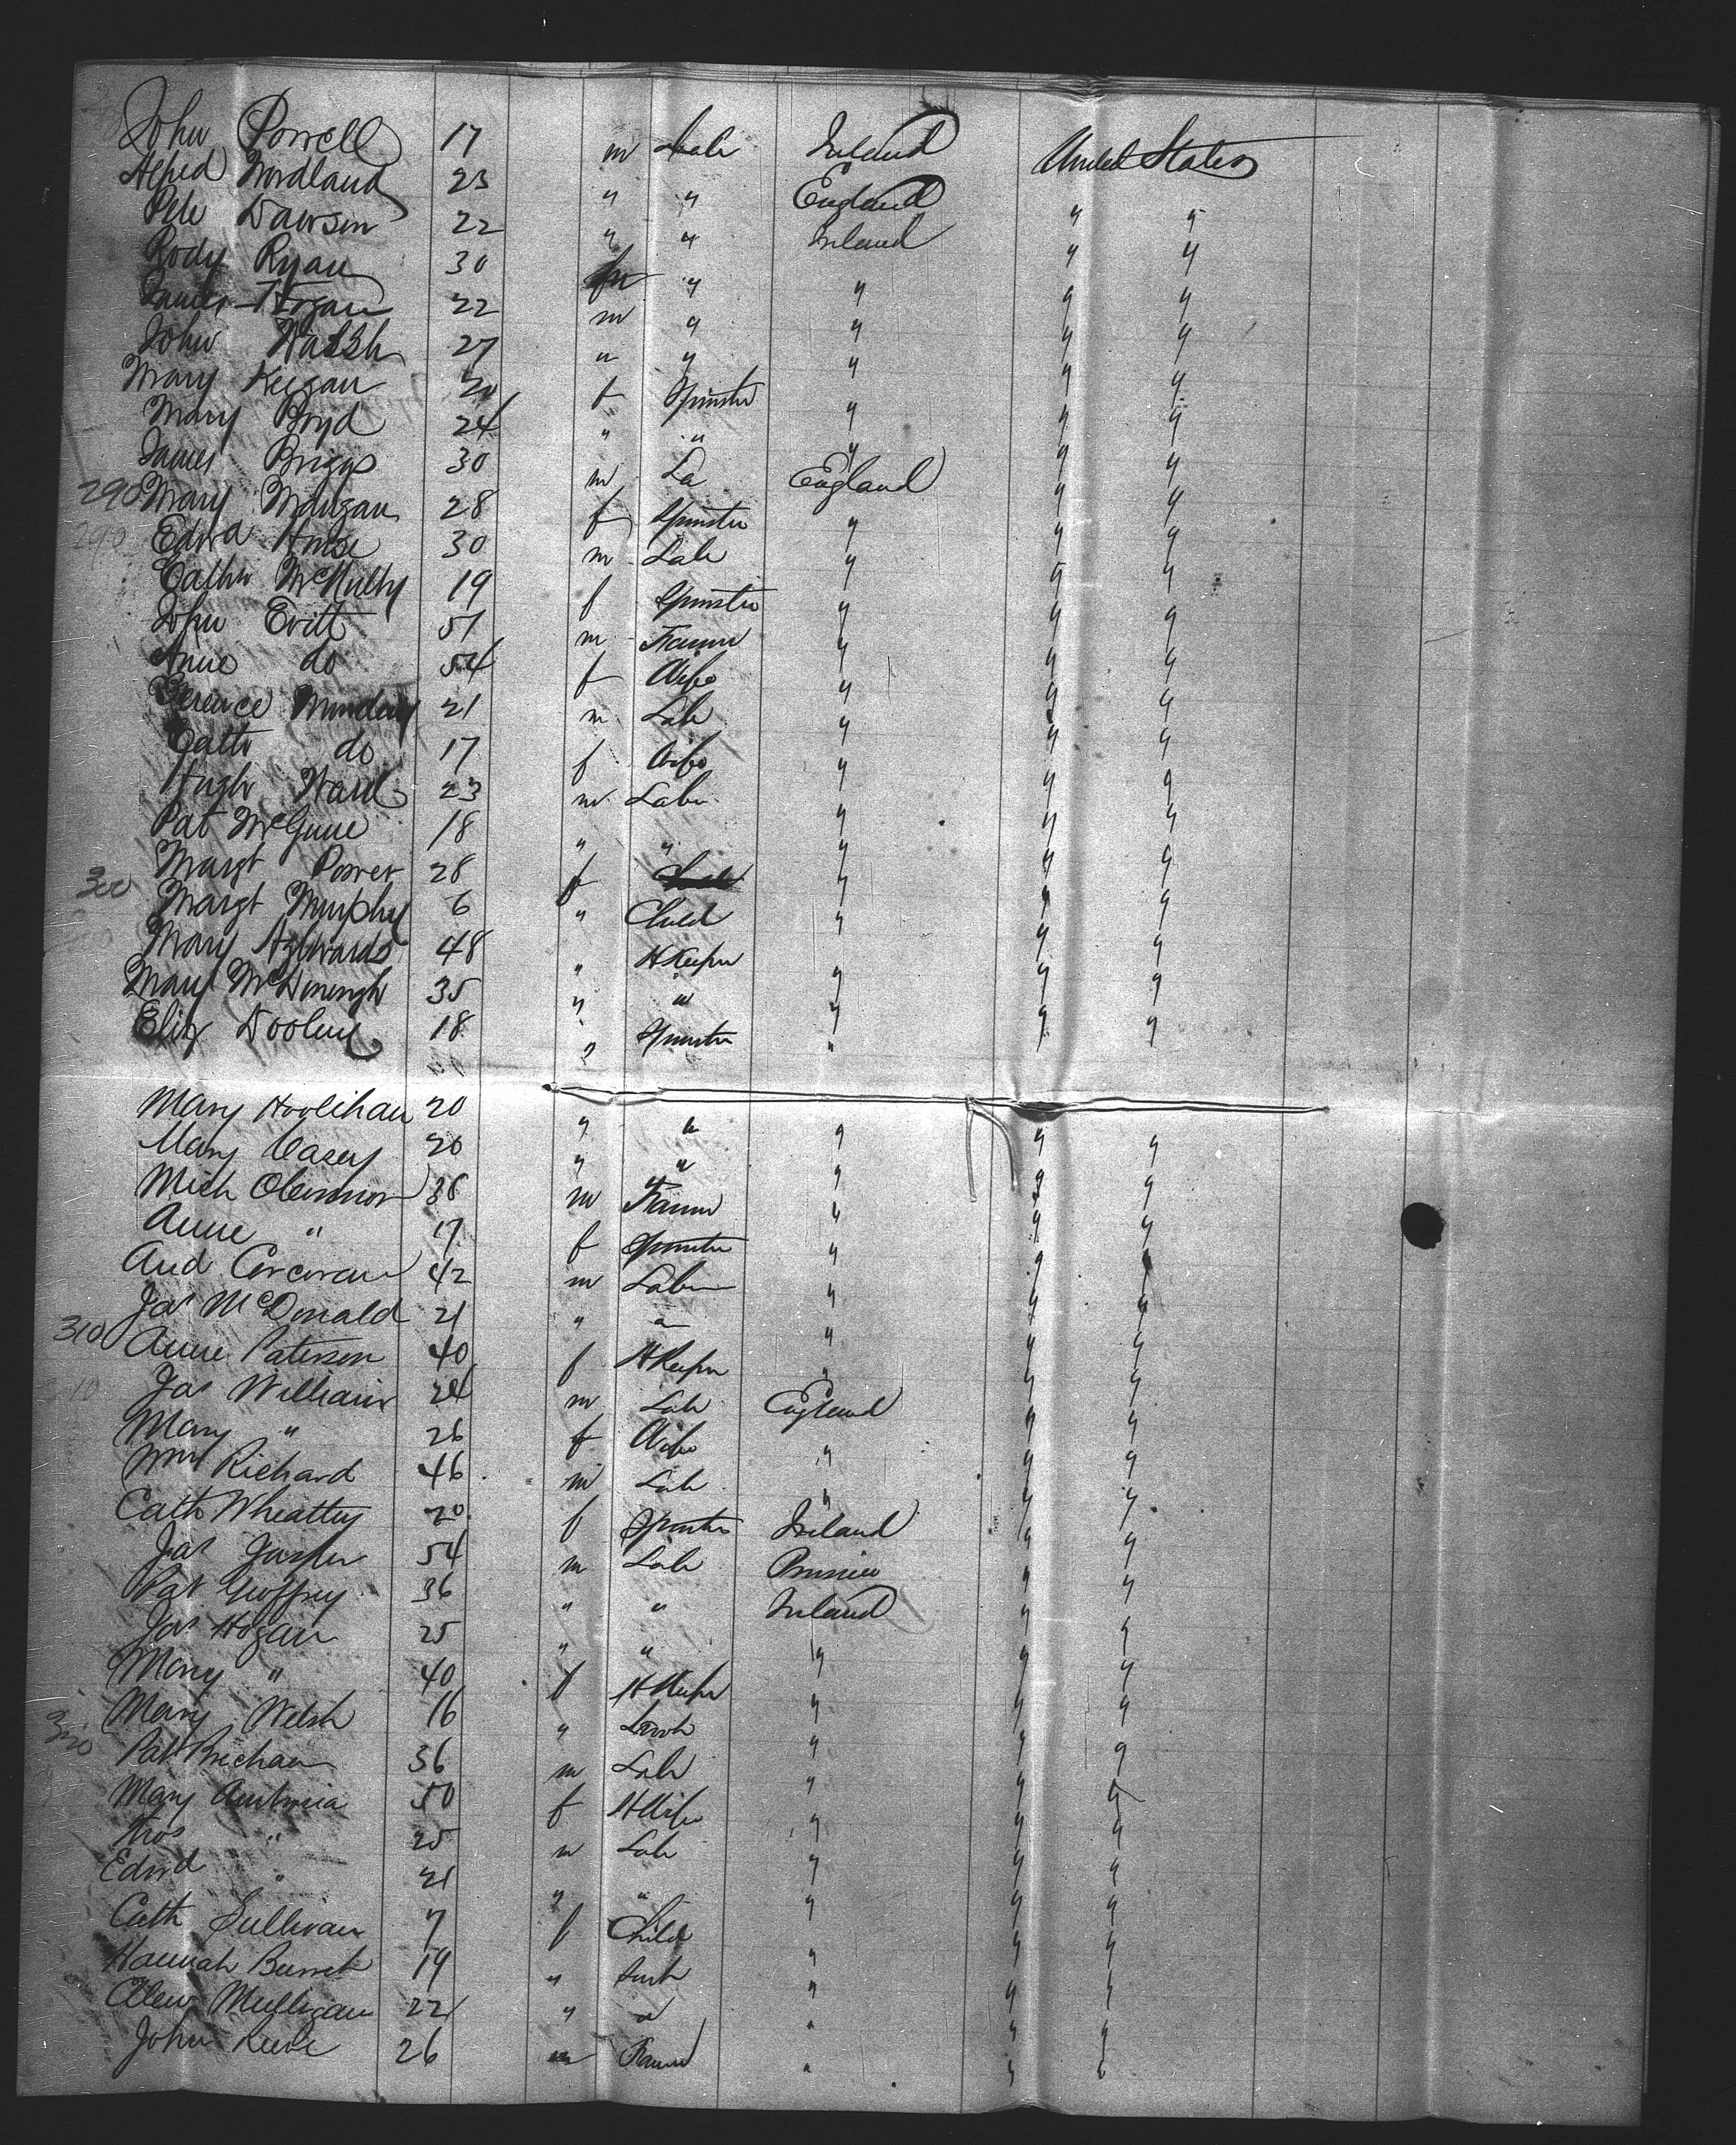 John Powell 17 m Lab Ireland United States
Alfred Nordland 23 " " England " "
Pele Dawson 22 " " Ireland " "
Rody Ryan 30 " " " "
James Hogan 22 m " " " "
John Walsh 27 " " " " "
Mary Keegan 20 f Spinster " " "
Mary Boyd 24 " " " " "
James Briggs 30 m La England " "
290 Mary Mangan 28 f Spinster " " "
290 Edwd House 30 m Lab " " "
Cathn McNulty 19 f Spinster " " "
John Evitt 51 m Farmr " " "
Anne do 54 f Wife " " "
Terence 21 m Lab " " "
Cath do 17 f Wife " " "
Hugh Ward 23 m Labr " " "
Pat McGuire 18 " " " " "
Margt Power 28 f " " "
300 Margt Murphy 6 " Child " " "
Mary 48 " HKeepr " " "
Mary 35 " " " " "
Eliz Dooley 18 " Spinster " " "
Mary Hoolihan 20 " " " " "
Mary Casey 20 " " " " "
Mich OConnor 38 m Farmr " " "
Anne " 17 f Spinster " " "
And Corcoran 42 m Labr " " "
Jas McDonald 21 " " " " "
310 Anne Paterson 40 f HKeepr " " "
Jas Williams 24 m Lab England " "
Mary " 26 f Wife " " "
Wm Richard 46 m Lab " " "
Cath Wheatley 20 f Spinster Ireland " "
Jas Jasper 54 m Lab Prussia " "
Pat Geoffrey 36 " " Ireland " "
Jas Hogan 25 " " " " "
Mary " 40 f HKeepr " " "
Mary Welsh 16 " " " "
320 Pat 36 m Lab " " "
Mary 50 f HWife " " "
Thos " 25 m Lab " " "
Edwd " 21 " " " " "
Cath Sullivan 7 f Child " " "
Hannah 19 " " " "
Mulligan 22 " " " " "
John 26 m Farmr " " "